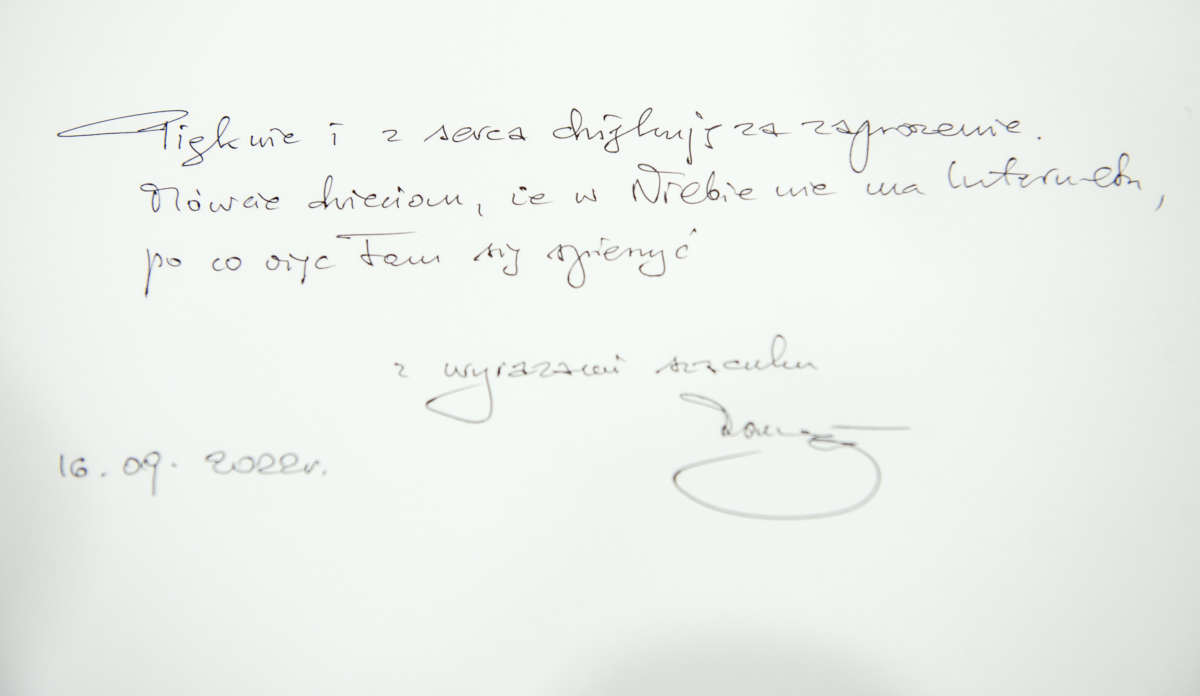 Pięknie i z serca dziękuję za zaproszenie.
Mówcie dzieciom, że w Niebie nie ma Internetu,
po co więc tam się spieszyć
z wyrazami szacunku
16.09.2022r.